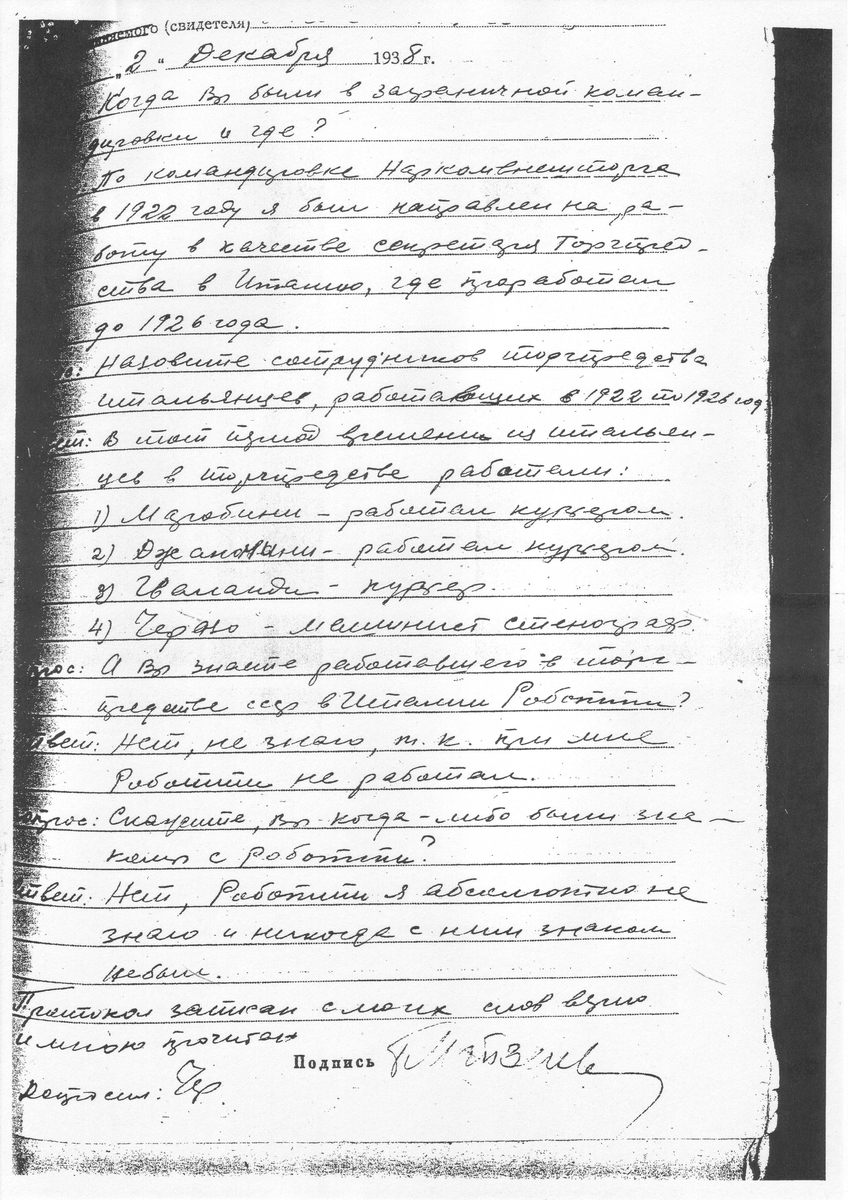 яемого (свидетеля)
„2“ Декабря 1938 г.
Когда Вы были в заграничной коман-
дировки и где?
По командировке Наркомвнешторга
в 1922 году я был направлен на ра-
боту в качестве секретаря Торгпред-
ства в Италию, где проработал
до 1926 года.
с: Назовите сотрудников торгпредства
итальянцев, работающих в 1922 по 1926 год
ет: В тот период времени из итальян-
цев в торгпредстве работали:
1) Магобини – работал курьером.
2) Джановини – работал курьером.
3) Гваланди – курьер.
4) Черазо – машинист стенограф
рос: А Вы знаете работавшего в торг-
предстве ссср в Италии Роботти?
твет: Нет, не знаю, т.к. при мне
Роботти не работал.
прос: Скажите, Вы когда-либо были зна-
комы с Роботти?
твет: Нет, Роботти я абсолютно не
знаю и никогда с ним знаком
небыл.
Протокол записан с моих слов верно
и мною прочитан
Подпись
Допросил: